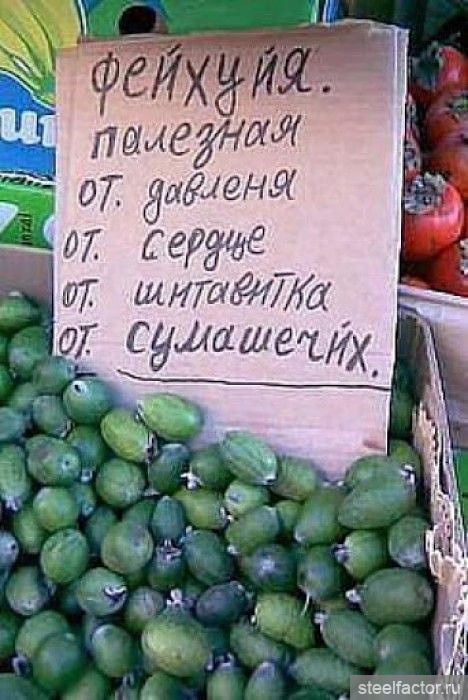 фейхуйя.
палезная
от. давленя
от. сердце
от. шитавитка
от. сумашечйх.
steelfactor.ru